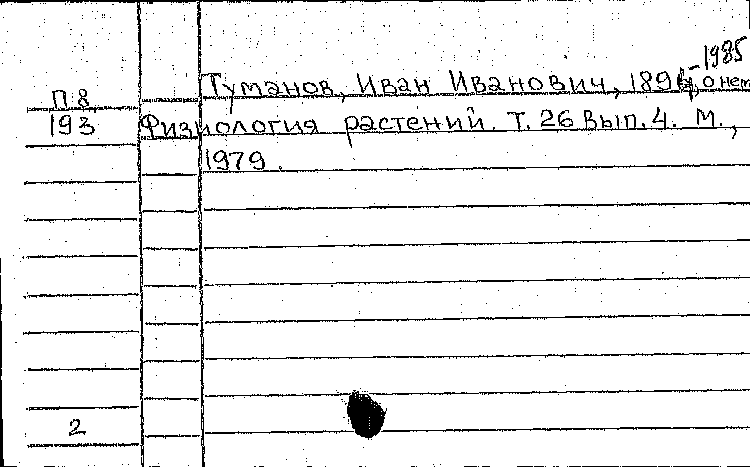 -1985
Туманов, Иван Иванович, 1894, о нем
П 8
193 Физиология растений. Т. 26 Вып. 4. М.,
1979.
2